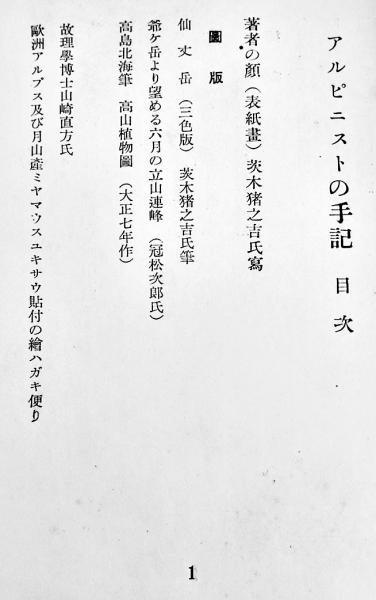 アルピニストの手記 目次
著者の顔(表紙畫)茨木猪之吉氏寫
圖版
仙丈岳(三色版)茨木猪之吉氏筆
爺ヶ岳より望める六月の立山連峰(冠松次郎氏)
高島北海筆 高山植物圖(大正七年作)
故理學博士山崎直方氏
歐洲アルプス及び月山產ミヤマウスユキサウ貼付の繪ハガキ便り
1